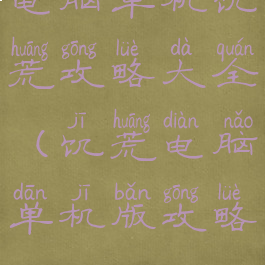 电脑单机饥
huāng gōng lüè dà quán
荒攻略大全
jī huāng diàn nǎo
（饥荒电脑
dān jī bǎn gōng lüè
单机版攻略